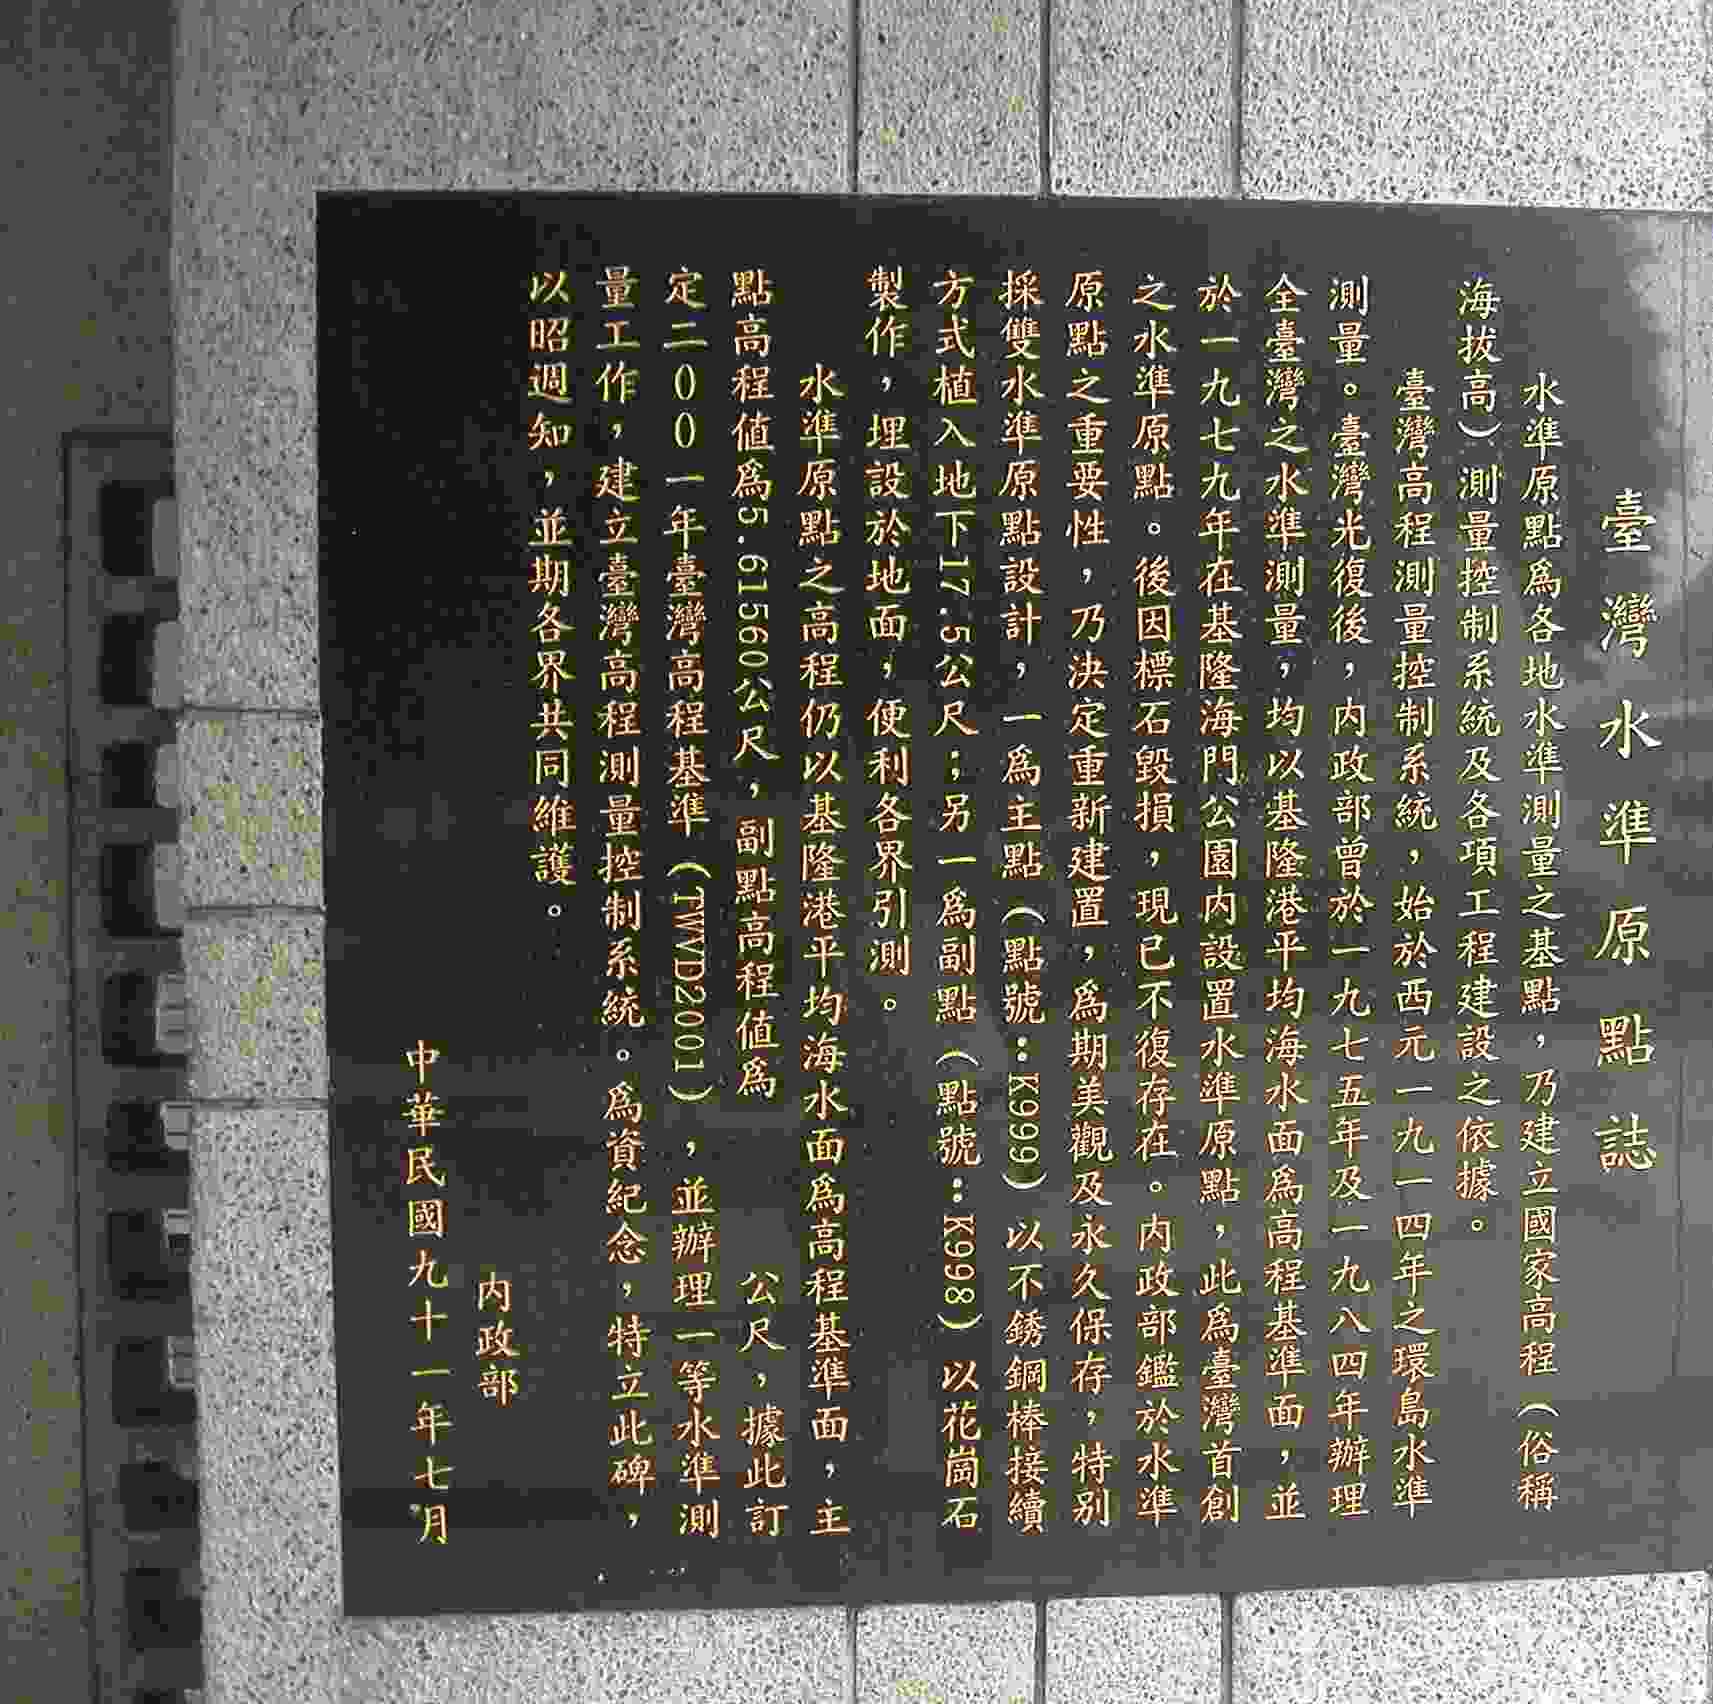 臺灣水準原點誌
水準原點為各地水準測量之基點，乃建立國家高程（俗稱
海拔高）測量控制系統及各項工程建設之依據。
臺灣高程測量控制系統，始於西元一九一四年之環島水準
測量。臺灣光復後，內政部曾於一九七五年及一九八四年辦理
全臺灣之水準測量，均以基隆港平均海水面為高程基準面，並
於一九七九年在基隆海門公園內設置水準原點，此為臺灣首創
之水準原點。後因標石毀損，現已不復存在。內政部鑑於水準
原點之重要性，乃決定重新建置，為期美觀及永久保存，特別
採雙水準原點設計，一為主點（點號：K999）以不銹鋼棒接續
方式植入地下17.5公尺；另一為副點（點號：K998）以花崗石
製作，埋設於地面，便利各界引測。
水準原點之高程仍以基隆港平均海水面為高程基準面，主
點高程值為5.61560公尺，副點高程值為　　　公尺，據此訂
定二00一年臺灣高程基準（TWVD2001），並辦理一等水準測
量工作，建立臺灣高程測量控制系統。為資紀念，特立此碑，
以昭週知，並期各界共同維護。
內政部
中華民國九十一年七月